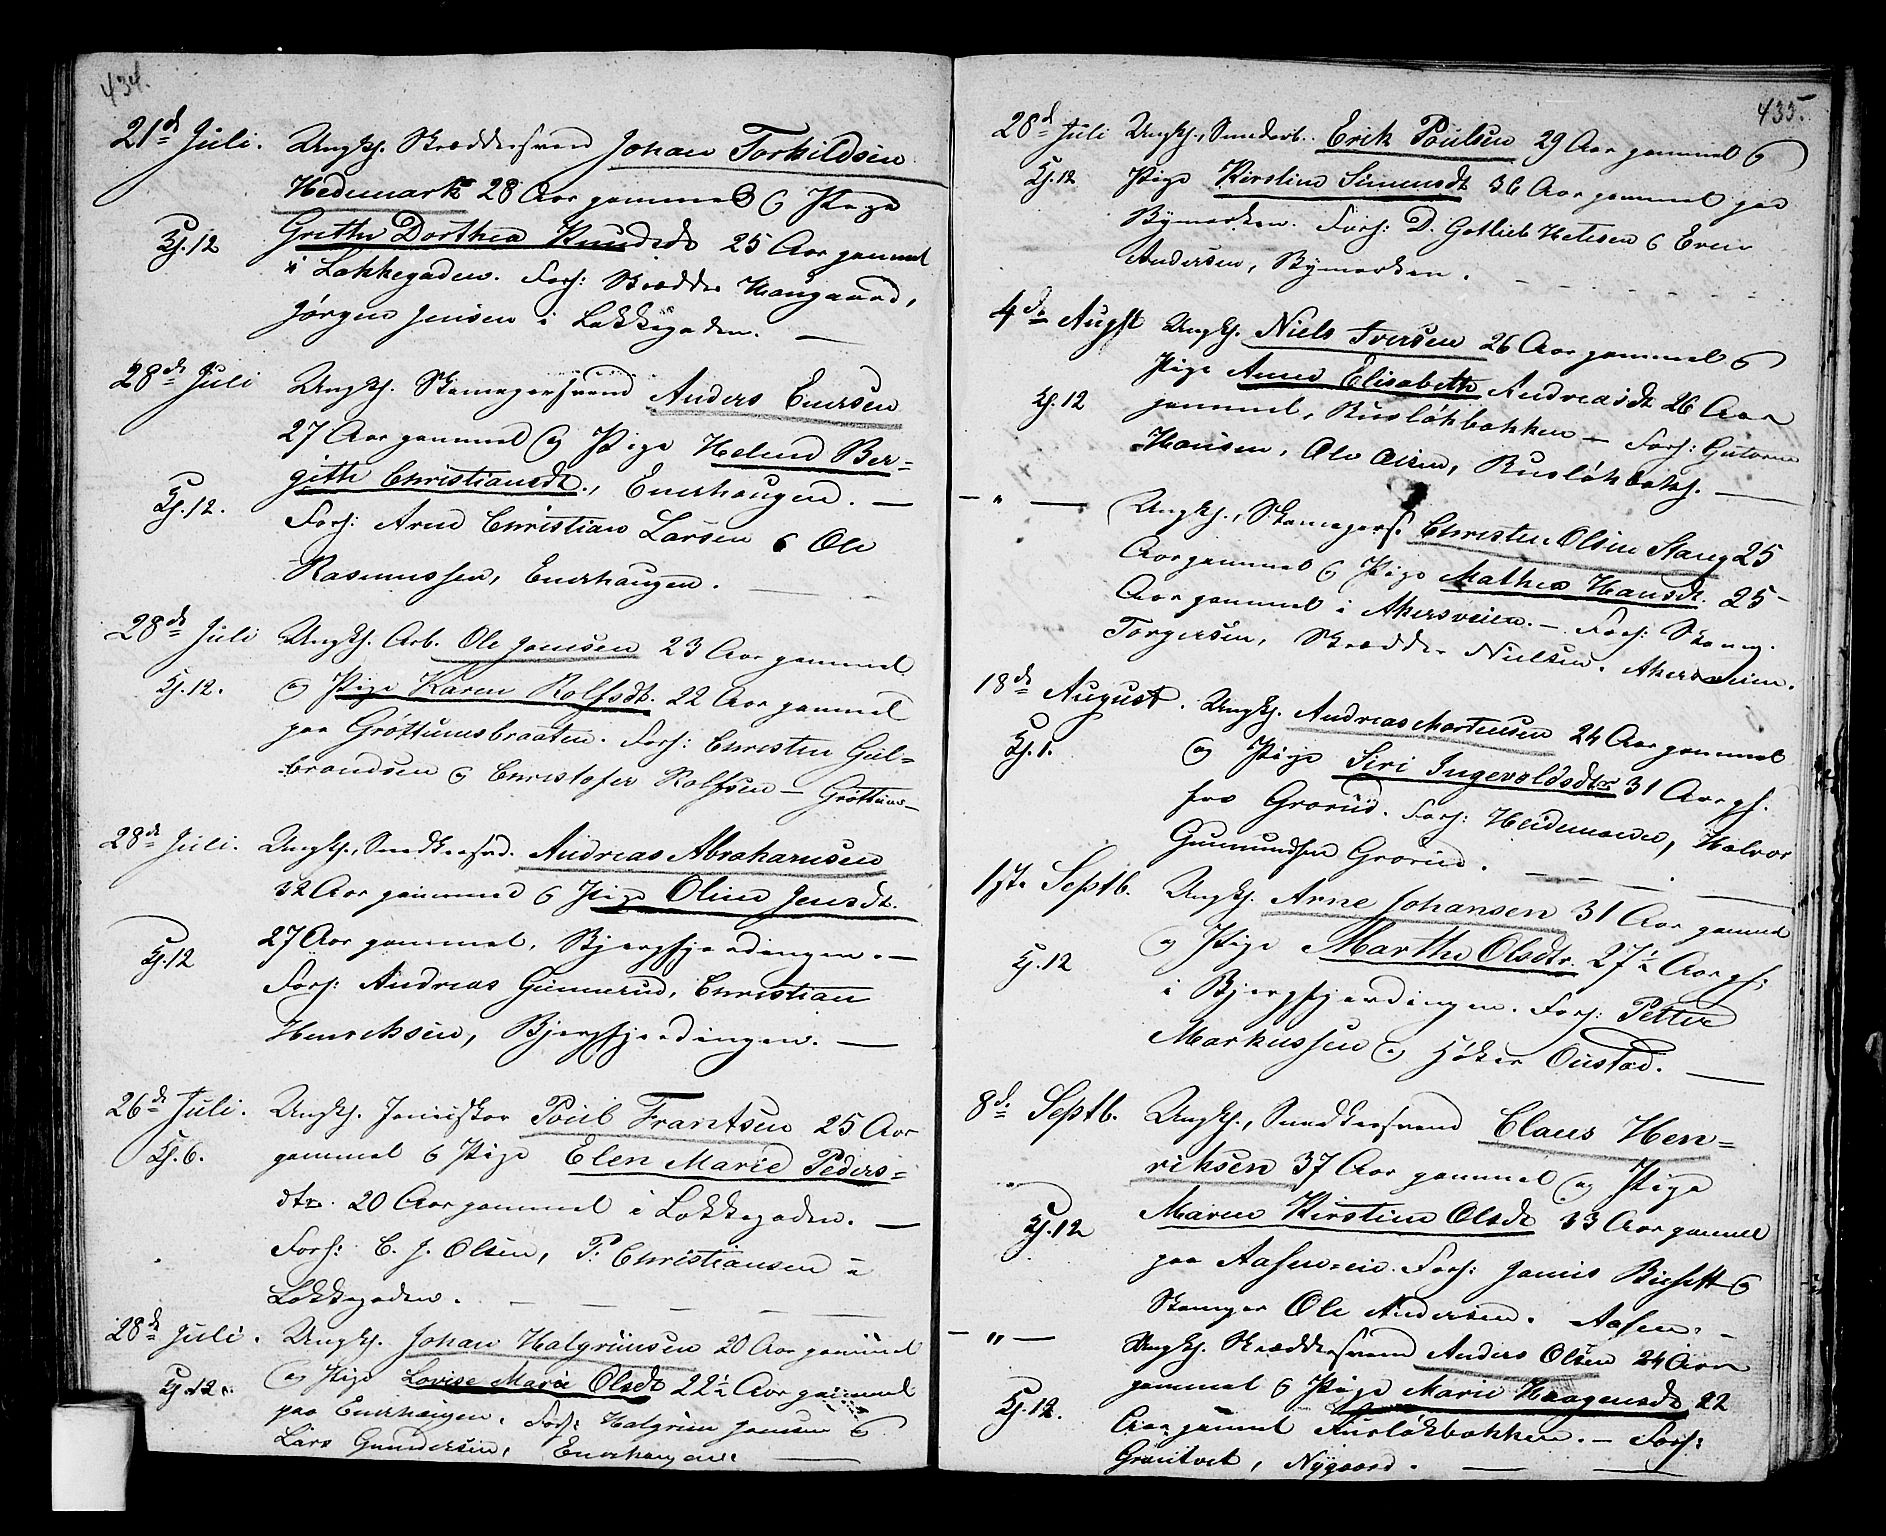 434.
21de Juli. Ungk. Skræddersvend Johan Torkildsen
Hedemark 28 Aar gammel & Pige
Kl. 12 Grethe Dorthea Knudsdt 25 Aar gammel
i Lakkegaden. Forl: Skrædder Haugaard,
Jørgen Jensen i Lakkegaden. —
28de Juli Ungk. Skomagersvend Anders Enersen
27 Aar gammel og Pige Helene Ber=
Kl. 12. githe Christiansdt., Enerhaugen. —
Forl: Arne Christian Larsen & Ole
Rasmussen, Enerhaugen. —
28de Juli Ungk. Arb. Ole Jansen 23 Aar gammel
Kl. 12. og Pige Karen Rolfsdt. 22 Aar gammel
paa Grøttumsbraaten. Forl: Christen Gul=
brandsen & Christofer Rolfsen — Grøttums—
28de Juli. Ungk., Snedkersvd. Andreas Abrahamsen
32 Aar gammel & Pige Oline Jensdt.
Kl. 12 27 Aar gammel, Bjergfjerdingen. —
Forl: Andreas Gunnerud, Christian
Henriksen, Bjergfjerdingen. —
26de Juli. Ungk. Poul Frantsen 25 Aar
Kl. 6. gammel & Pige Elen Marie Peders=
dtr. 20 Aar gammel i Lakkegaden. —
Forl: C. J. Olsen, P. Christiansen i
Lakkegaden. —
28de Juli. Ungk. Johan Halgrimsen 20 Aar gammel
Kl. 12. og Pige Lovise Marie Olsdt 22½ Aar gammel
paa Enerhaugen. Forl: Halgrim Jansen &
Lars Gundersen, Enerhaugen. —
435.
28de Juli Ungk., Erik Poulsen 29 Aar gammel &
Kl. 12 Pige Kirstine Simensdt 36 Aar gammel paa
Bymarken. Forl: D. Gotlieb Hetesen & Even
Andersen, Bymarken.
4de Augst Ungk. Niels Iversen 26 Aar gammel &
Pige Anne Elisabeth Andreasdt 26 Aar
Kl. 12 gammel, Rusløkbakken — Forl: Gutorm
Hansen, Ole Olsen, Rusløkbakk. —
— " — Ungk., Skomagers. Christen Olsen Stang 25
Aar gammel & Pige Mathea Hansdt. 25
Aar gammel i Akersveien. — Forl: Skom.
Torgersen, Skrædder Nielsen. Akersveien.
18de August. Ungk. Andreas Mortensen 24 Aar gammel
Kl. 1. og Pige Siri Ingevoldsdtr 31 Aar gl.
fra Grorud. Forl: Halvor
Gunmundsen Grorud.
1ste Septb. Ungk. Arne Johansen 31 Aar gammel
Kl. 12 og Pige Marthe Olsdtr. 27½ Aar gl.
i Bjergfjerdingen. Forl: Petter
Markussen og Høker Oustad. —
8de Septb. Ungk., Snedkersvend Claus Hen=
riksen 37 Aar gammel og Pige
Kl. 12 Maren Kirstine Olsdt 33 Aar gammel
paa Aasenvei. Forl: &
Skomager Ole Andersen. Aasen. —
— " — Ungk. Skræddersvend Anders Olsen 24 Aar
gammel & Pige Marie Haagensdt 22
Kl. 12. Aar gammel Rusløkbakken. — Forl:
Granitvet, Nygaard. —